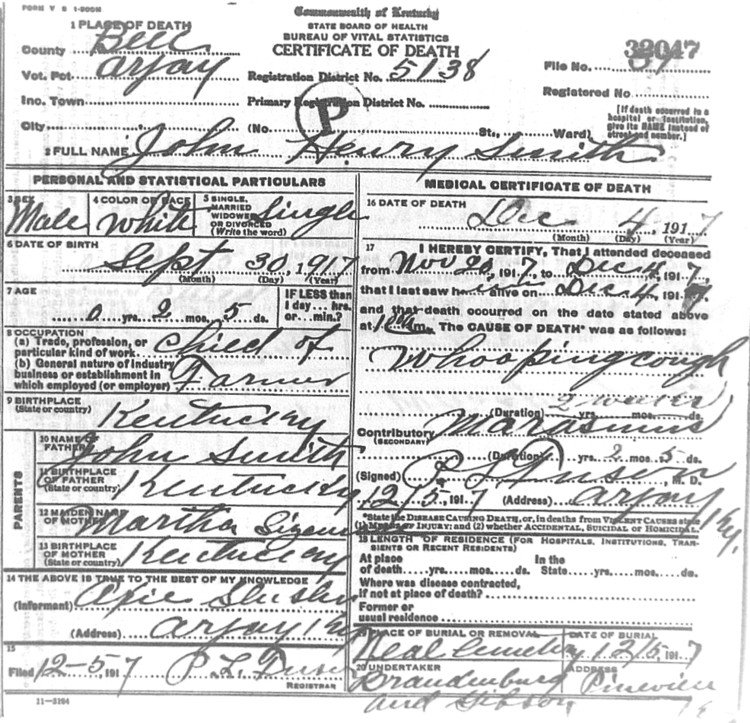 FORM V S 1-200M
Commonwealth of Kentucky
STATE BOARD OF HEALTH
BUREAU OF VITAL STATISTICS
CERTIFICATE OF DEATH
1 PLACE OF DEATH
County Bell
Vot. Pct. Arjay
Inc. Town
City
Registration District No. 5138
Primary Registration District No.
P
(No. St., Ward)
32047
File No.
Registered No.
[If death occurred in a
hospital or institution,
give its NAME instead of
street and number.]
2 FULL NAME John Henry Smith
PERSONAL AND STATISTICAL PARTICULARS
3 SEX
Male
4 COLOR OF RACE
White
5 SINGLE,
MARRIED
WIDOWED
OR DIVORCED
(Write the word)
Single
6 DATE OF BIRTH
Sept 30, 1917
(Month) (Day) (Year)
7 AGE
0 yrs. 2 mos. 5 ds.
IF LESS than
1 day ... hrs.
or ... min.?
8 OCCUPATION
(a) Trade, profession, or
particular kind of work
(b) General nature of industry
business or establishment in
which employed (or employer)
Child of
Farmer
9 BIRTHPLACE
(State or country)
Kentucky
PARENTS
10 NAME OF
FATHER
John Smith
11 BIRTHPLACE
OF FATHER
(State or country)
Kentucky
12 MAIDEN NAME
OF MOTHER
Martha
13 BIRTHPLACE
OF MOTHER
(State or country)
Kentucky
14 THE ABOVE IS TRUE TO THE BEST OF MY KNOWLEDGE
(Informant)
(Address) Arjay Ky
15
Filed 12-5, 1917 P. L.
REGISTRAR
11-3184
MEDICAL CERTIFICATE OF DEATH
16 DATE OF DEATH
Dec 4, 1917
(Month) (Day) (Year)
17 I HEREBY CERTIFY, That I attended deceased
from Nov 20, 1917, to Dec 4, 1917,
that I last saw him alive on Dec 4, 1917,
and that death occurred on the date stated above
at m. The CAUSE OF DEATH* was as follows:
Whooping cough
(Duration) yrs. mos. ds.
Contributory Marasmus
(SECONDARY)
(Duration) yrs. 2 mos. 5 ds.
(Signed) P. L. M. D.
12-5, 1917 (Address) Arjay Ky.
*State the DISEASE CAUSING DEATH, or, in deaths from VIOLENT CAUSES state
(1) MEANS OF INJURY; and (2) whether ACCIDENTAL, SUICIDAL OR HOMICIDAL.
18 LENGTH OF RESIDENCE (FOR HOSPITALS, INSTITUTIONS, TRAN-
SIENTS OR RECENT RESIDENTS)
At place
of death yrs. mos. ds.
In the
State yrs. mos. ds.
Where was disease contracted,
if not at place of death?
Former or
usual residence
19 PLACE OF BURIAL OR REMOVAL
Cemetery
DATE OF BURIAL
12/5, 1917
20 UNDERTAKER
Brandenburg
and Gibson
ADDRESS
Pineville